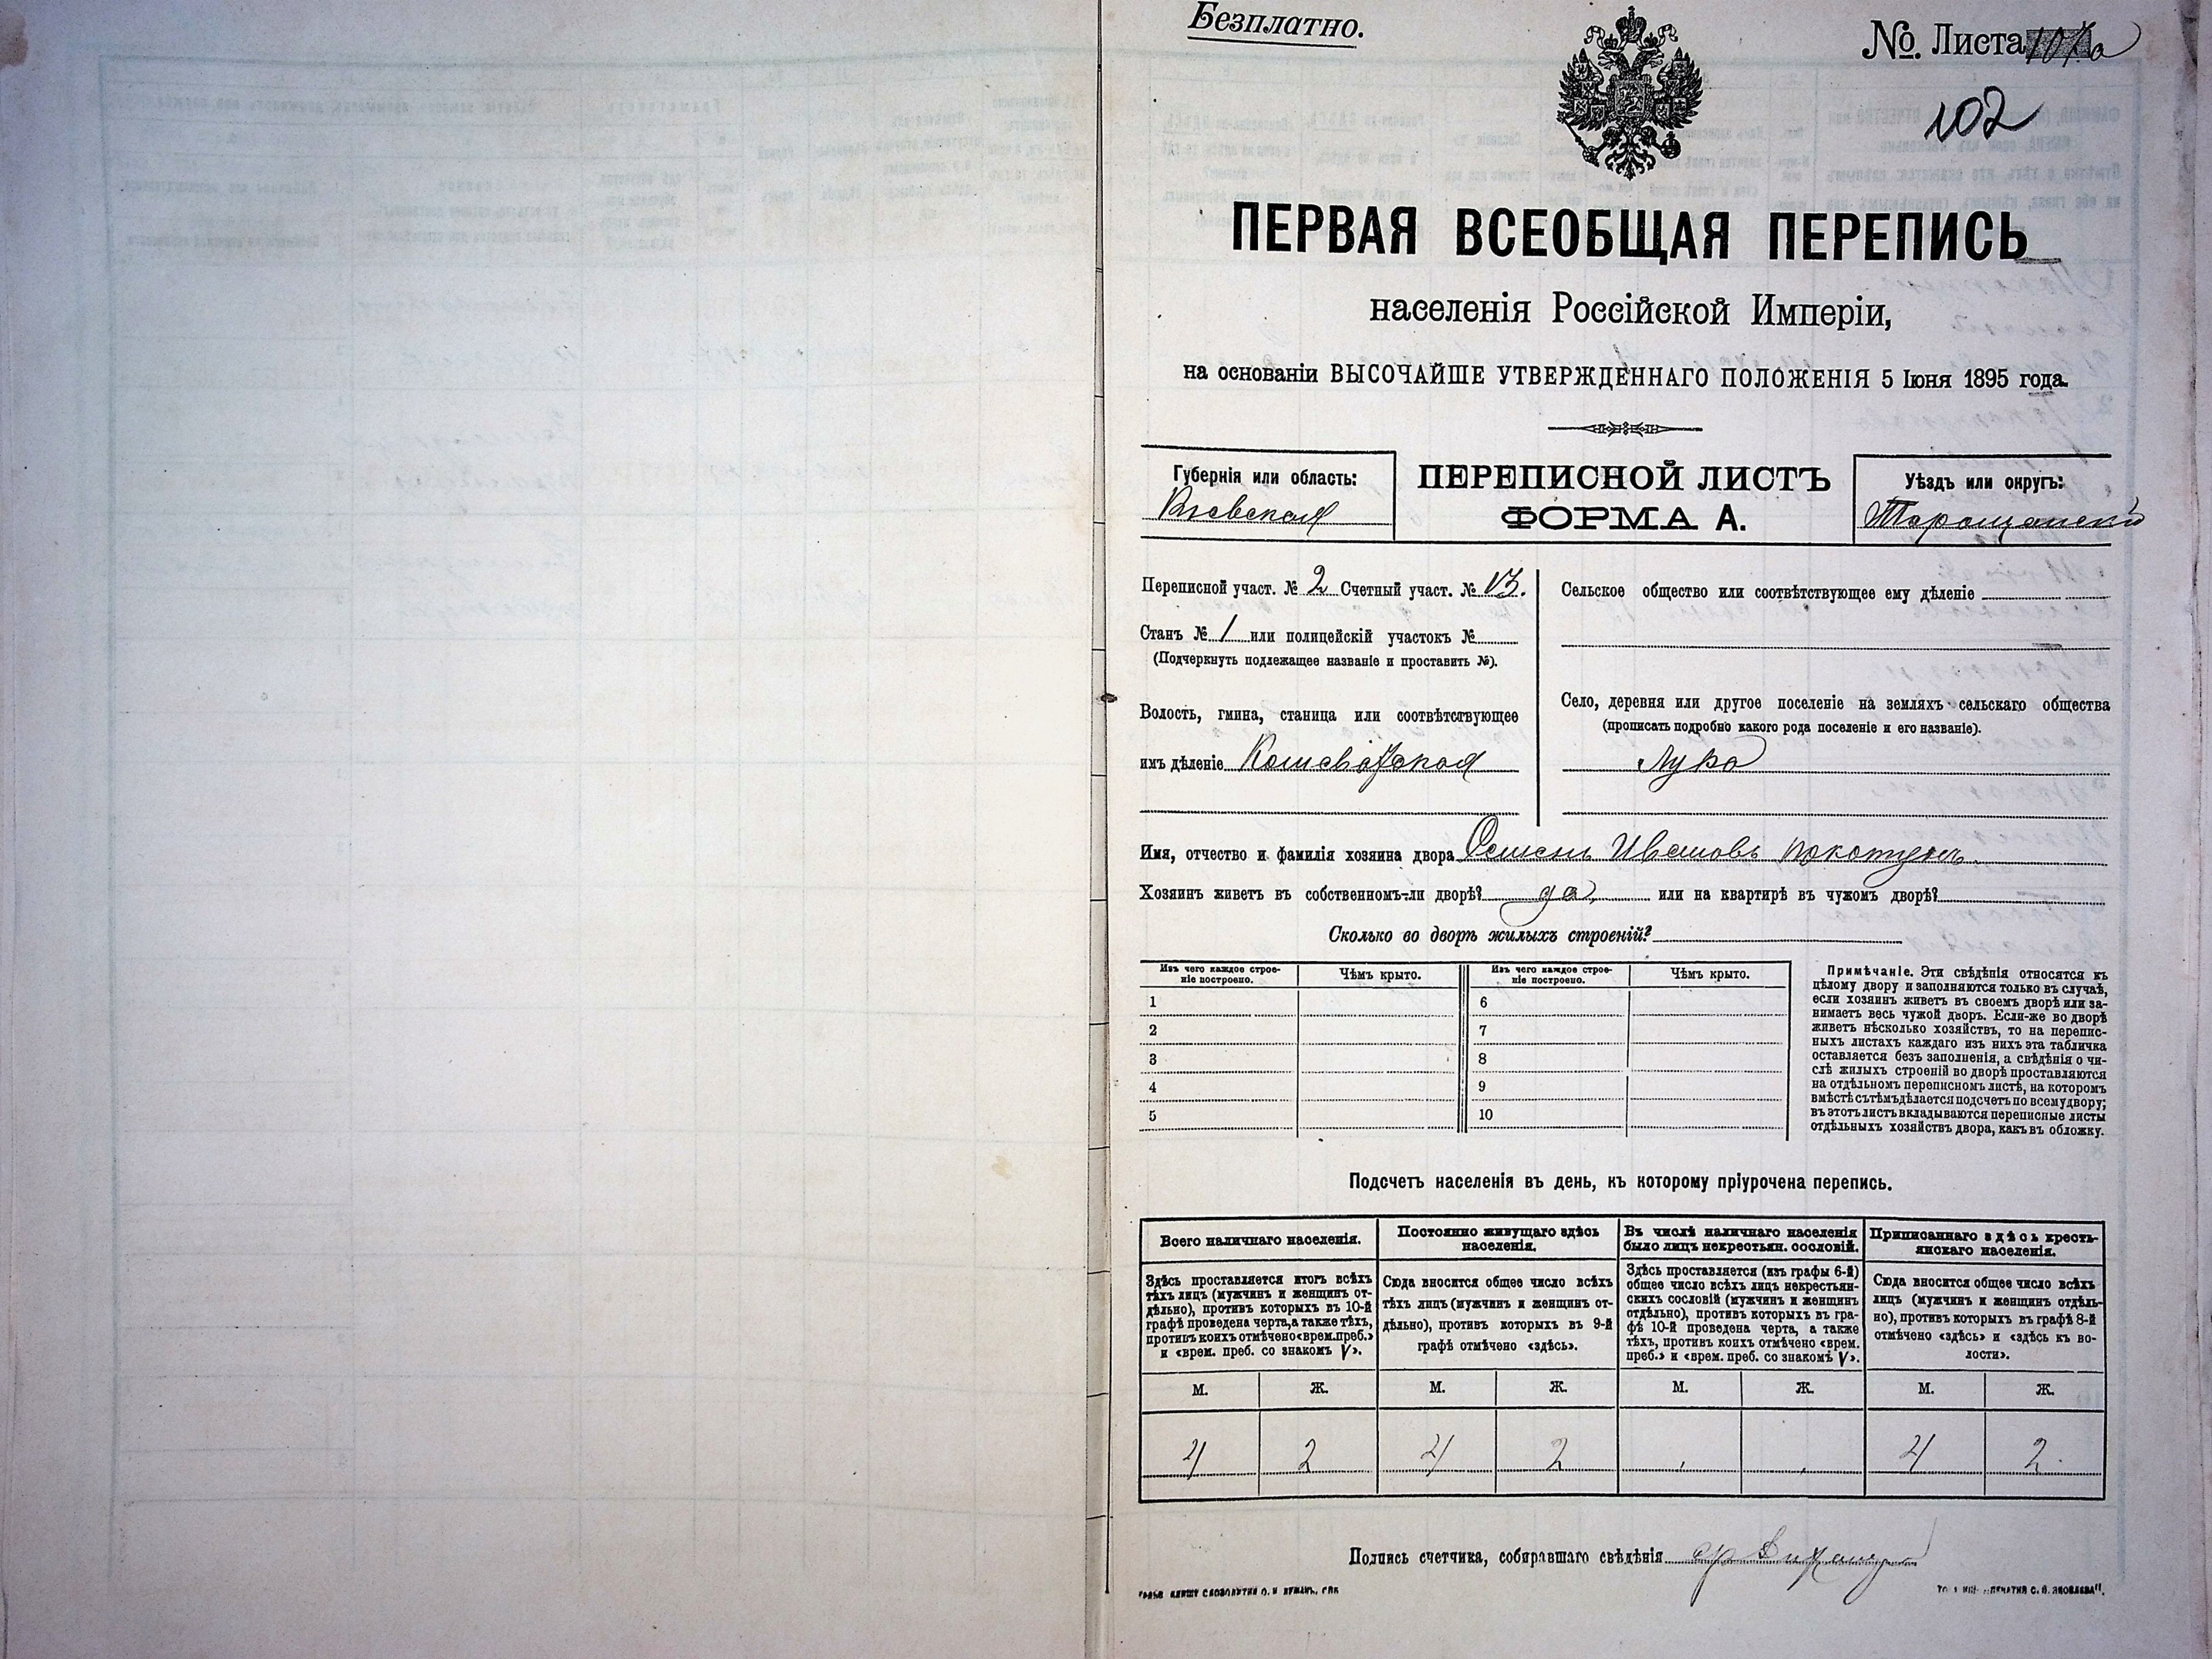 Безплатно.
№ Листа
102
ПЕРВАЯ ВСЕОБЩАЯ ПЕРЕПИСЬ
населенія Россійской Имперіи,
на основаніи ВЫСОЧАЙШЕ УТВЕРЖДЕННАГО ПОЛОЖЕНІЯ 5 Іюня 1895 года.
Губернія или область:
Кіевская
ПЕРЕПИСНОЙ ЛИСТЪ
ФОРМА А.
Уѣздъ или округъ:
Таращанскій
Переписной участ. № 2 Счетный участ. № 13.
Станъ № 1 или полицейскій участокъ №
(Подчеркнуть подлежащее названіе и проставить №).
Волость, гмина, станица или соотвѣтствующее
имъ дѣленіе
Сельское общество или соотвѣтствующее ему дѣленіе
Село, деревня или другое поселеніе на земляхъ сельскаго общества
(прописать подробно какого рода поселеніе и его названіе).
Лука
Имя, отчество и фамилія хозяина двора Ивановъ
Хозяинъ живетъ въ собственномъ-ли дворѣ? да, или на квартирѣ въ чужомъ дворѣ?
Сколько во дворѣ жилыхъ строеній?
Изъ чего каждое строе-
ніе построено.
Чѣмъ крыто.
Изъ чего каждое строе-
ніе построено.
Чѣмъ крыто.
1 6
2 7
3 8
4 9
5 10
Примѣчаніе. Эти свѣдѣнія относятся къ
цѣлому двору и заполняются только въ случаѣ,
если хозяинъ живетъ въ своемъ дворѣ или за-
нимаетъ весь чужой дворъ. Если-же во дворѣ
живетъ нѣсколько хозяйствъ, то на перепис-
ныхъ листахъ каждаго изъ нихъ эта табличка
оставляется безъ заполненія, а свѣдѣнія о чи-
слѣ жилыхъ строеній во дворѣ проставляются
на отдѣльномъ переписномъ листѣ, на которомъ
вмѣстѣ съ тѣмъ дѣлается подсчетъ по всему двору;
въ этотъ листъ вкладываются переписные листы
отдѣльныхъ хозяйствъ двора, какъ въ обложку.
Подсчетъ населенія въ день, къ которому пріурочена перепись.
Всего наличнаго населенія.
Здѣсь проставляется итогъ всѣхъ
тѣхъ лицъ (мужчинъ и женщинъ от-
дѣльно), противъ которыхъ въ 10-й
графѣ проведена черта, а также тѣхъ,
противъ коихъ отмѣчено «врем. преб.»
и «врем. преб. со знакомъ V».
Постоянно живущаго здѣсь
населенія.
Сюда вносится общее число всѣхъ
тѣхъ лицъ (мужчинъ и женщинъ от-
дѣльно), противъ которыхъ въ 9-й
графѣ отмѣчено «здѣсь».
Въ числѣ наличнаго населенія
было лицъ некрестьян. сословій.
Здѣсь проставляется (изъ графы 6-й)
общее число всѣхъ лицъ некрестьян-
скихъ сословій (мужчинъ и женщинъ
отдѣльно), противъ которыхъ въ гра-
фѣ 10-й проведена черта, а также
тѣхъ, противъ коихъ отмѣчено «врем.
преб.» и «врем. преб. со знакомъ V».
Приписаннаго здѣсь кресть-
янскаго населенія.
Сюда вносится общее число всѣхъ
лицъ (мужчинъ и женщинъ отдѣль-
но), противъ которыхъ въ графѣ 8-й
отмѣчено «здѣсь» и «здѣсь къ во-
лости».
М. Ж. М. Ж. М. Ж. М. Ж.
4 2 4 2 4 2
Подпись счетчика, собиравшаго свѣдѣнія